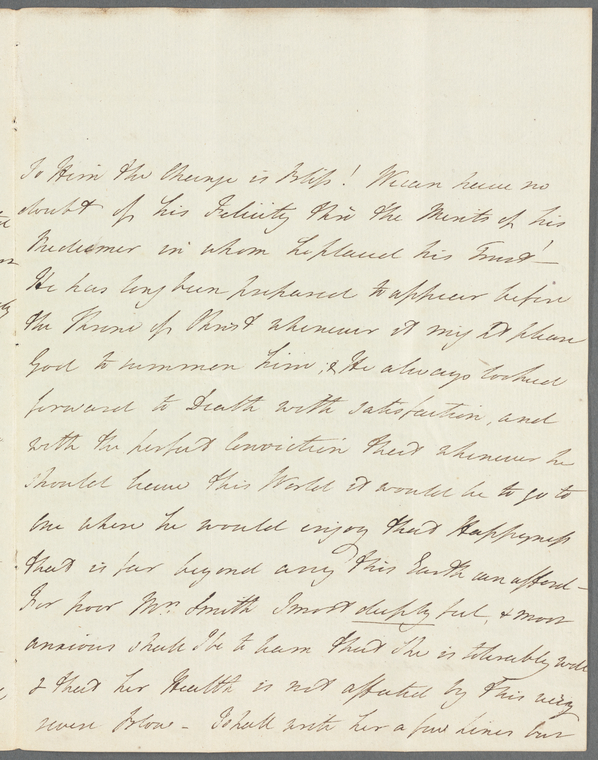 To Him the Change is Bliss! We can have no
doubt of his Felicity thro the Merits of his
Redeemer in whom he placed his Trust! –
He has long been prepared to appear before
the Throne of Christ whenever it might please
God to summon him; & He always looked
forward to Death with satisfaction, and
with the perfect Conviction that whenever he
should leave this World it would be to go to
one where he would enjoy that Happyness
that is far beyond any this Earth can afford –
For poor Mrs. Smith I most deeply feel, & most
anxious shall I be to learn that She is tolerably well
& that her Health is not affected by this very
severe Blow – I shall write her a few lines but